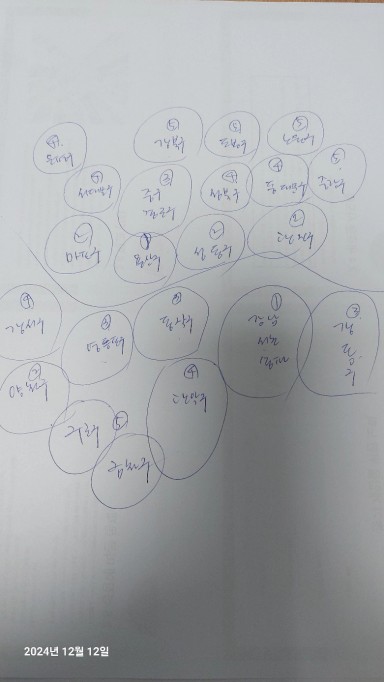 ⑤ ⑤ ⑤
강북구 도봉구 노원구
④
은평구
④ ③ ④ ④ ⑤
서대문구 중구 성북구 동대문구 중랑구
종로구
② ① ② ②
마포구 용산구 성동구 광진구
④ ③ ③ ① ③
강서구 영등포구 동작구 강남 강
서초 동
송파 구
② ④
양천구 관악구
구로구 ⑤
금천구
2024년 12월 12일